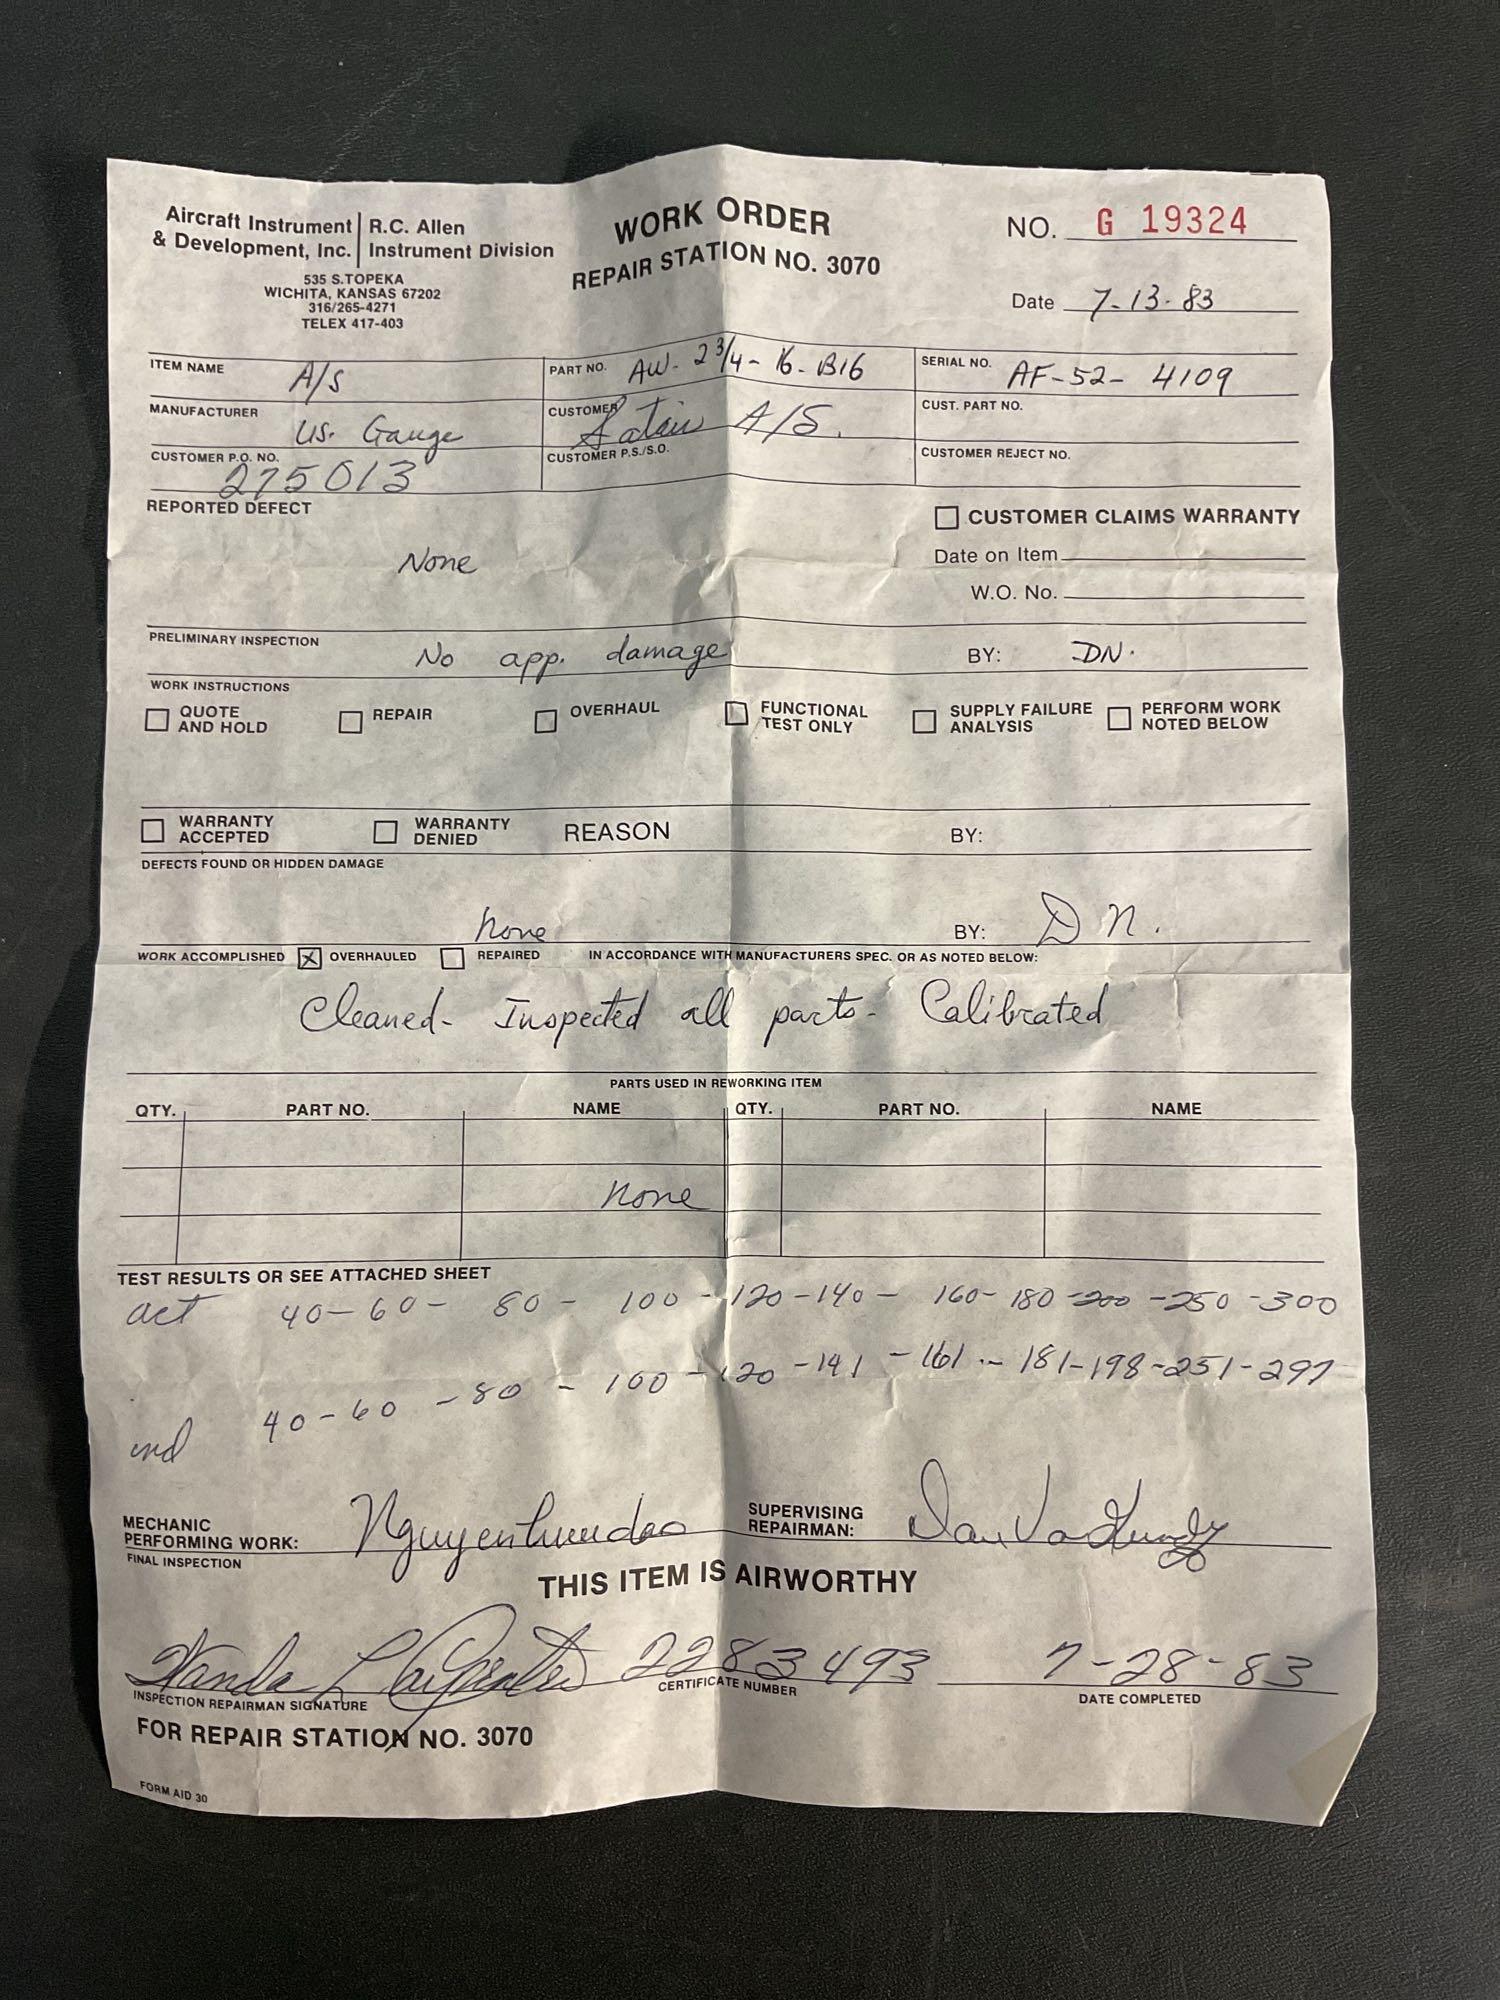 Aircraft Instrument | R.C. Allen
& Development, Inc. | Instrument Division
535 S. TOPEKA
WICHITA, KANSAS 67202
316/265-4271
TELEX 417-403
WORK ORDER
REPAIR STATION NO. 3070
NO. G 19324
Date 7-13-83
ITEM NAME A/S PART NO. AW-2 3/4-16-B16 SERIAL NO. AF-52-4109
MANUFACTURER US. Gauge CUSTOMER Satair A/S. CUST. PART NO.
CUSTOMER P.O. NO. 275013 CUSTOMER P.S./S.O. CUSTOMER REJECT NO.
REPORTED DEFECT
None
CUSTOMER CLAIMS WARRANTY
Date on Item
W.O. No.
PRELIMINARY INSPECTION No app. damage BY: DN.
WORK INSTRUCTIONS
QUOTE AND HOLD REPAIR OVERHAUL FUNCTIONAL TEST ONLY SUPPLY FAILURE ANALYSIS PERFORM WORK NOTED BELOW
WARRANTY ACCEPTED WARRANTY DENIED REASON BY:
DEFECTS FOUND OR HIDDEN DAMAGE
none BY: D N.
WORK ACCOMPLISHED X OVERHAULED REPAIRED IN ACCORDANCE WITH MANUFACTURERS SPEC. OR AS NOTED BELOW:
Cleaned- Inspected all parts- Calibrated
PARTS USED IN REWORKING ITEM
QTY. PART NO. NAME QTY. PART NO. NAME
none
TEST RESULTS OR SEE ATTACHED SHEET
act 40-60- 80- 100-120-140- 160-180-200-250-300
ind 40-60-80-100-120-141-161-181-198-251-297
MECHANIC PERFORMING WORK: SUPERVISING REPAIRMAN:
FINAL INSPECTION
THIS ITEM IS AIRWORTHY
Wanda L Carpenter 2283493 7-28-83
INSPECTION REPAIRMAN SIGNATURE CERTIFICATE NUMBER DATE COMPLETED
FOR REPAIR STATION NO. 3070
FORM AID 30